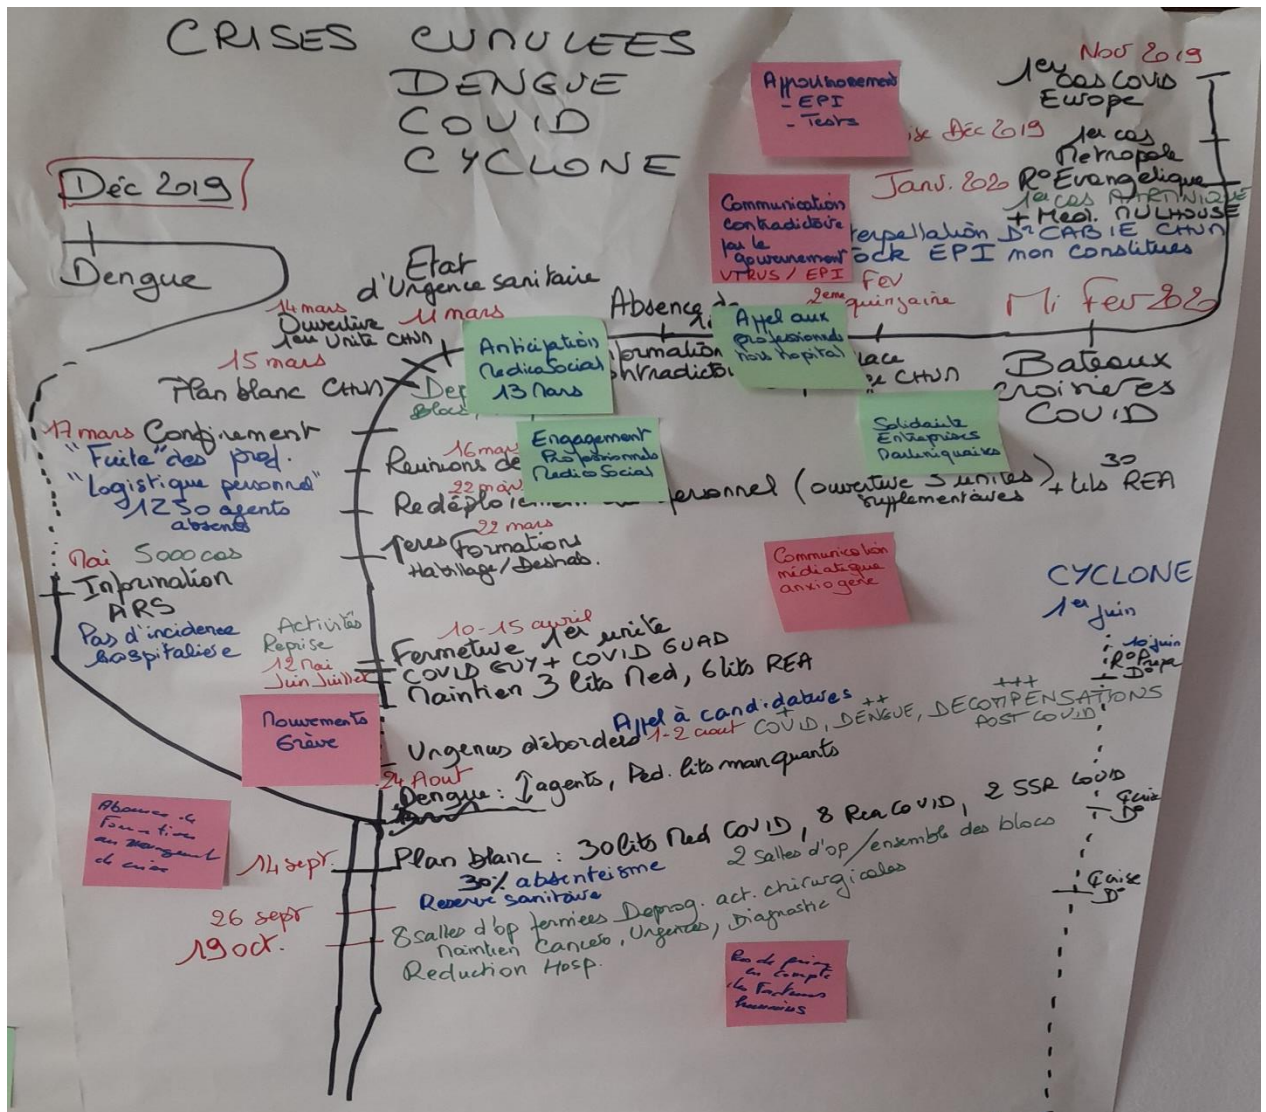 CRISES CUMULEES
DENGUE
COVID
CYCLONE
Déc 2019
Dengue
Nov 2019
1er cas COVID
Europe
Approvisionnement
- EPI
- Tests
Déc 2019
1er cas
Métropole
Janv. 2020 R° Evangélique
1er cas MARTINIQUE
+ Med. MULHOUSE
Communication
contradictoire
par le
gouvernement
VIRUS / EPI
Dr CABIE CHUM
EPI non constitués
Mi Fev 2020
Fev
2eme quinzaine
Bateaux
croisières
COVID
Etat
d'Urgence sanitaire
11 mars
14 mars
Ouverture
1ere Unité CHUM
15 mars
Plan blanc CHUM
Absence
Appel aux
professionnels
hors hopital
CHUM
Anticipation
MedicoSocial
13 Mars
Solidarité
Entreprises
Martiniquaises
17 mars Confinement
"Fuite" des prof.
"Logistique personnel"
1250 agents
absents
16 mars
Réunions de
Engagement
Professionnels
MedicoSocial
22 mars
Redéploiement personnel (ouverture 3 unités
supplémentaires) + 30 lits REA
22 mars
1eres Formations
Habillage/Deshab.
Mai 5000 cas
Information
ARS
Pas d'incidence
hospitalière
Communication
médiatique
anxiogène
CYCLONE
1er juin
10 juin
R° Prépa
D°
Activités
Reprise
12 Mai
Juin Juillet
10-15 avril
Fermeture 1er unité
COVID GUY + COVID GUAD
Maintien 3 lits Med, 6 lits REA
Mouvements
Grève
Appel à candidatures
Urgences débordées 1-2 aout COVID +, DENGUE ++, DECOMPENSATIONS +++
POST COVID
24 Aout
Dengue : agents, Ped. lits manquants
Absence de
Formation
au management
de crise
14 sept.
Plan blanc : 30 lits Med COVID, 8 Rea COVID, 2 SSR COVID
30% absentéisme
2 salles d'op/ensemble des blocs
Reserve sanitaire
26 sept
19 oct.
8 salles d'op fermées Deprog. act. chirurgicales
Maintien Cancéro, Urgences, Diagnostic
Reduction Hosp.
Pas de prise
en compte
des Facteurs
humains